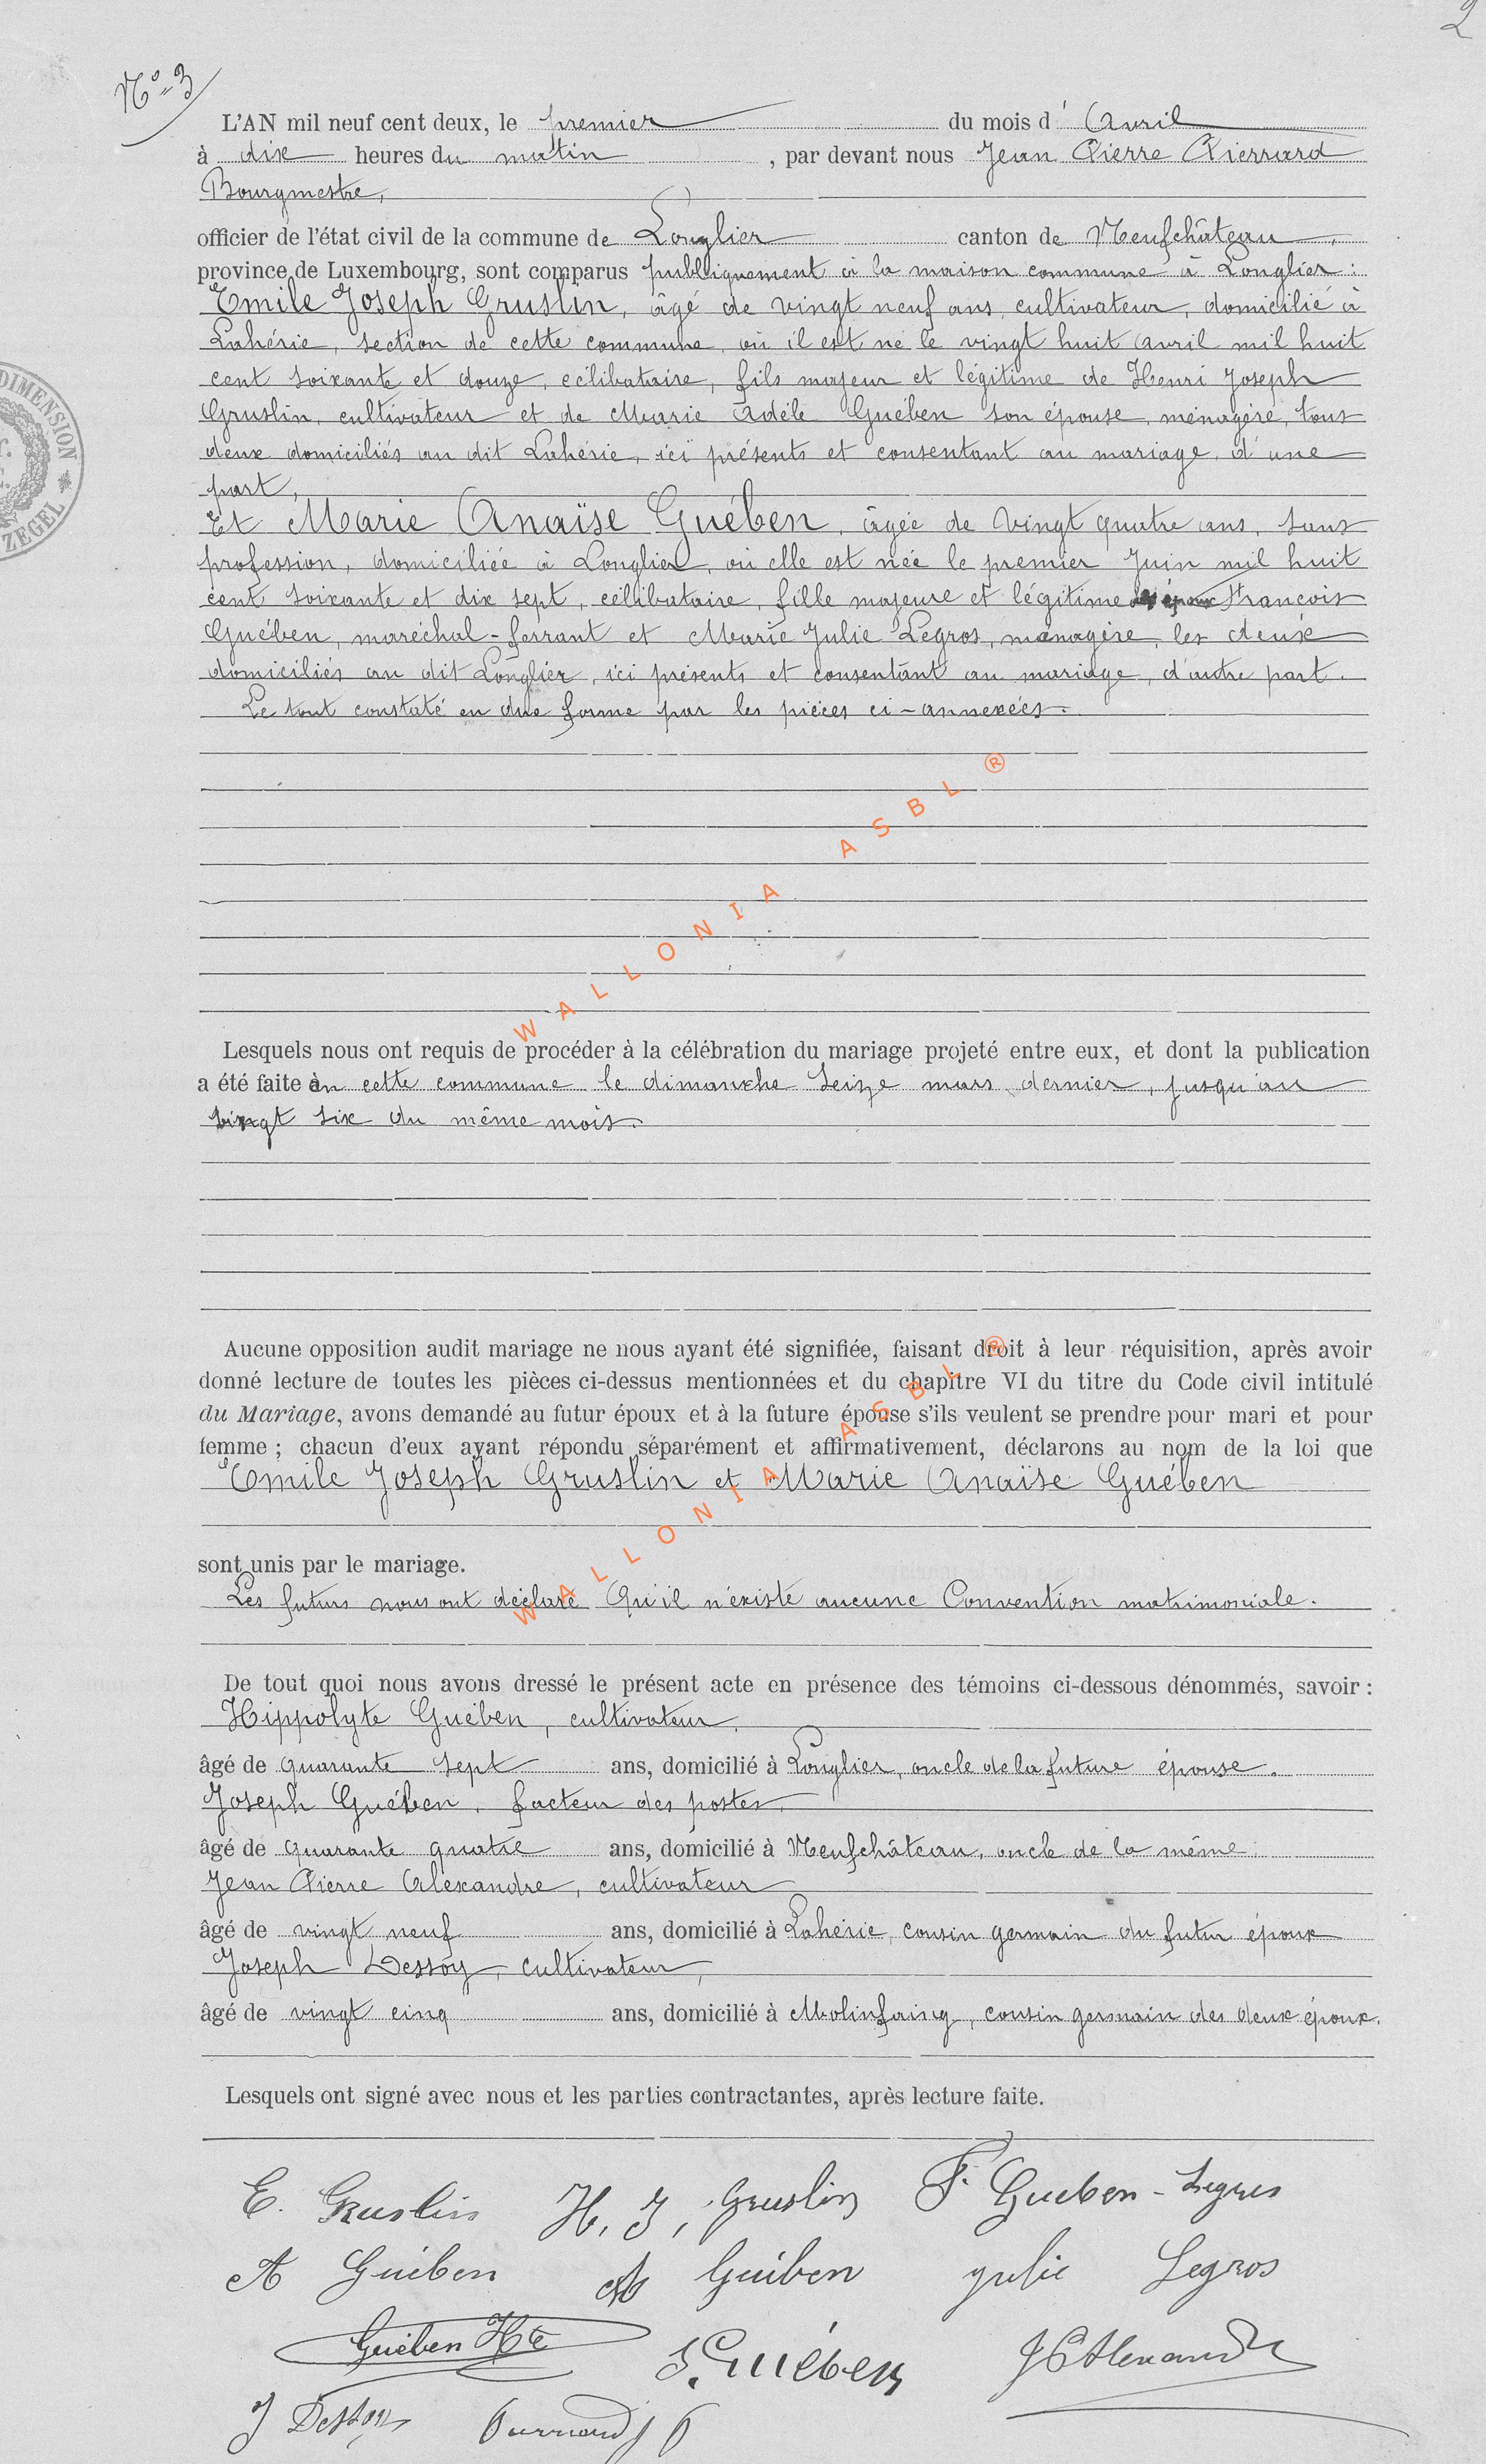 2
N° 3
L'AN mil neuf cent deux, le premier du mois d' Avril
à dix heures du matin , par devant nous Jean Pierre Pierrard
Bourgmestre,
officier de l'état civil de la commune de Longlier canton de Neufchâteau,
province de Luxembourg, sont comparus publiquement à la maison commune à Longlier :
Emile Joseph Gruslin, âgé de vingt neuf ans, cultivateur, domicilié à
Lahérie, section de cette commune, où il est né le vingt huit avril mil huit
cent soixante et douze, célibataire, fils majeur et légitime de Henri Joseph
Gruslin, cultivateur et de Marie Adèle Guében son épouse, ménagère, tous
deux domiciliés au dit Lahérie, ici présents et consentant au mariage, d'une
part,
Et Marie Anaïse Guében, âgée de vingt quatre ans, sans
profession, domiciliée à Longlier, où elle est née le premier Juin mil huit
cent soixante et dix sept, célibataire, fille majeure et légitime François
Guében, maréchal-ferrant et Marie Julie Legros, ménagère, les deux
domiciliés au dit Longlier, ici présents et consentant au mariage, d'autre part.
Le tout constaté en due forme par les pièces ci-annexées.
WALLONIA ASBL ®
Lesquels nous ont requis de procéder à la célébration du mariage projeté entre eux, et dont la publication
a été faite en cette commune le dimanche seize mars dernier, jusqu'au
vingt six du même mois.
Aucune opposition audit mariage ne nous ayant été signifiée, faisant droit à leur réquisition, après avoir
donné lecture de toutes les pièces ci-dessus mentionnées et du chapitre VI du titre du Code civil intitulé
du Mariage, avons demandé au futur époux et à la future épouse s'ils veulent se prendre pour mari et pour
femme ; chacun d'eux ayant répondu séparément et affirmativement, déclarons au nom de la loi que
Emile Joseph Gruslin et Marie Anaïse Guében
WALLONIA ASBL ®
sont unis par le mariage.
Les futurs nous ont déclaré Qu'il n'existe aucune Convention matrimoniale.
De tout quoi nous avons dressé le présent acte en présence des témoins ci-dessous dénommés, savoir :
Hippolyte Guében, cultivateur,
âgé de quarante sept ans, domicilié à Longlier, oncle de la future épouse.
Joseph Guében, facteur des postes,
âgé de quarante quatre ans, domicilié à Neufchâteau, oncle de la même.
Jean Pierre Alexandre, cultivateur
âgé de vingt neuf ans, domicilié à Lahérie, cousin germain du futur époux
Joseph Dessoy, cultivateur,
âgé de vingt cinq ans, domicilié à Molinfaing, cousin germain des deux époux.
Lesquels ont signé avec nous et les parties contractantes, après lecture faite.
E. Gruslin H. J, Gruslin F. Gueben-Legros
A Guében A Guében julie Legros
Guében Hte J. Guében JPAlexandre
J Dessoy
DIMENSION
ZEGEL